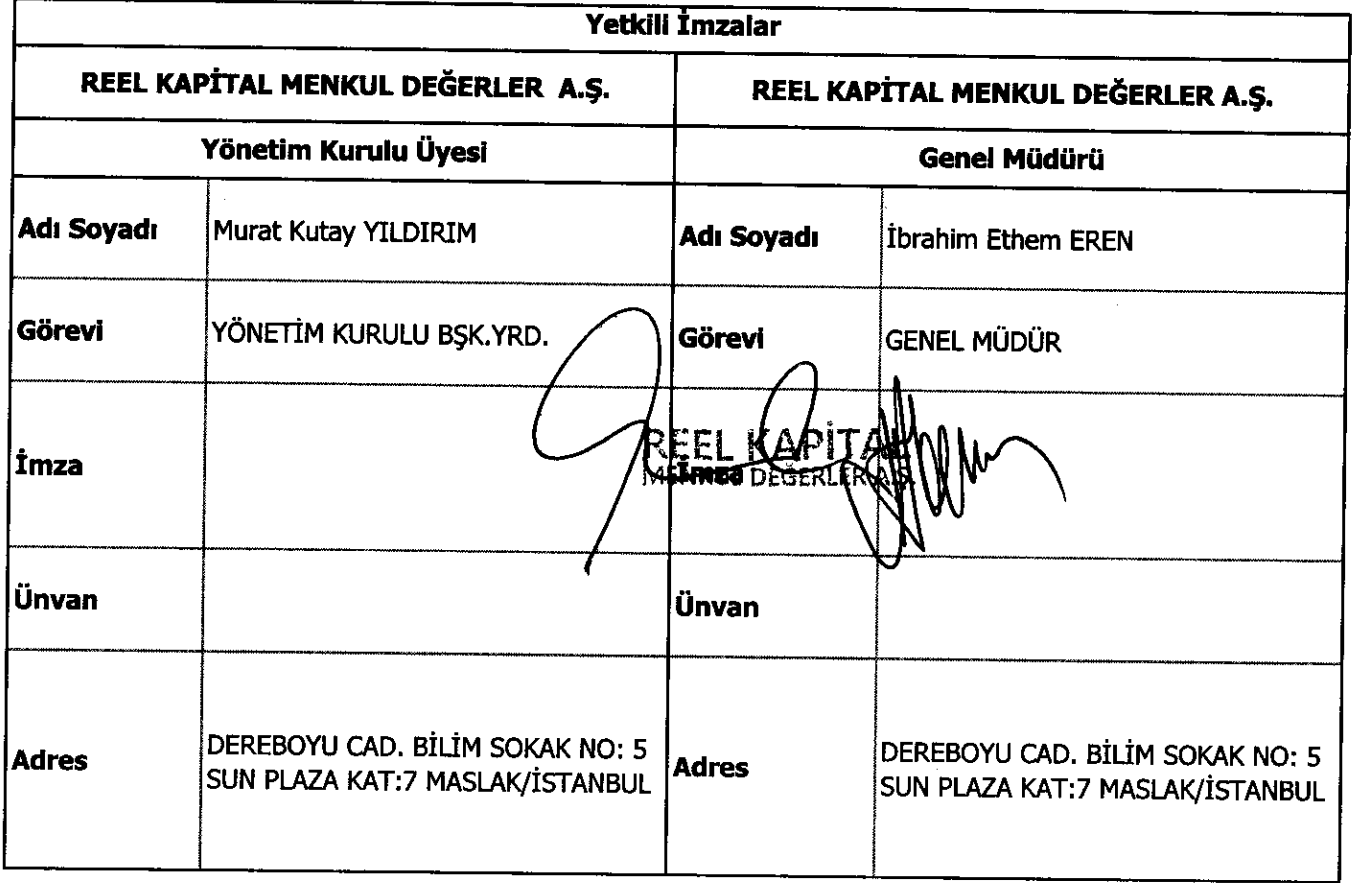 Yetkili İmzalar
REEL KAPİTAL MENKUL DEĞERLER A.Ş.
REEL KAPİTAL MENKUL DEĞERLER A.Ş.
Yönetim Kurulu Üyesi
Genel Müdürü
Adı Soyadı
Murat Kutay YILDIRIM
Adı Soyadı
İbrahim Ethem EREN
Görevi
YÖNETİM KURULU BŞK.YRD.
Görevi
GENEL MÜDÜR
İmza
İmza
REEL KAPİTAL
DEĞERLER A.Ş.
Ünvan
Ünvan
Adres
DEREBOYU CAD. BİLİM SOKAK NO: 5
SUN PLAZA KAT:7 MASLAK/İSTANBUL
Adres
DEREBOYU CAD. BİLİM SOKAK NO: 5
SUN PLAZA KAT:7 MASLAK/İSTANBUL